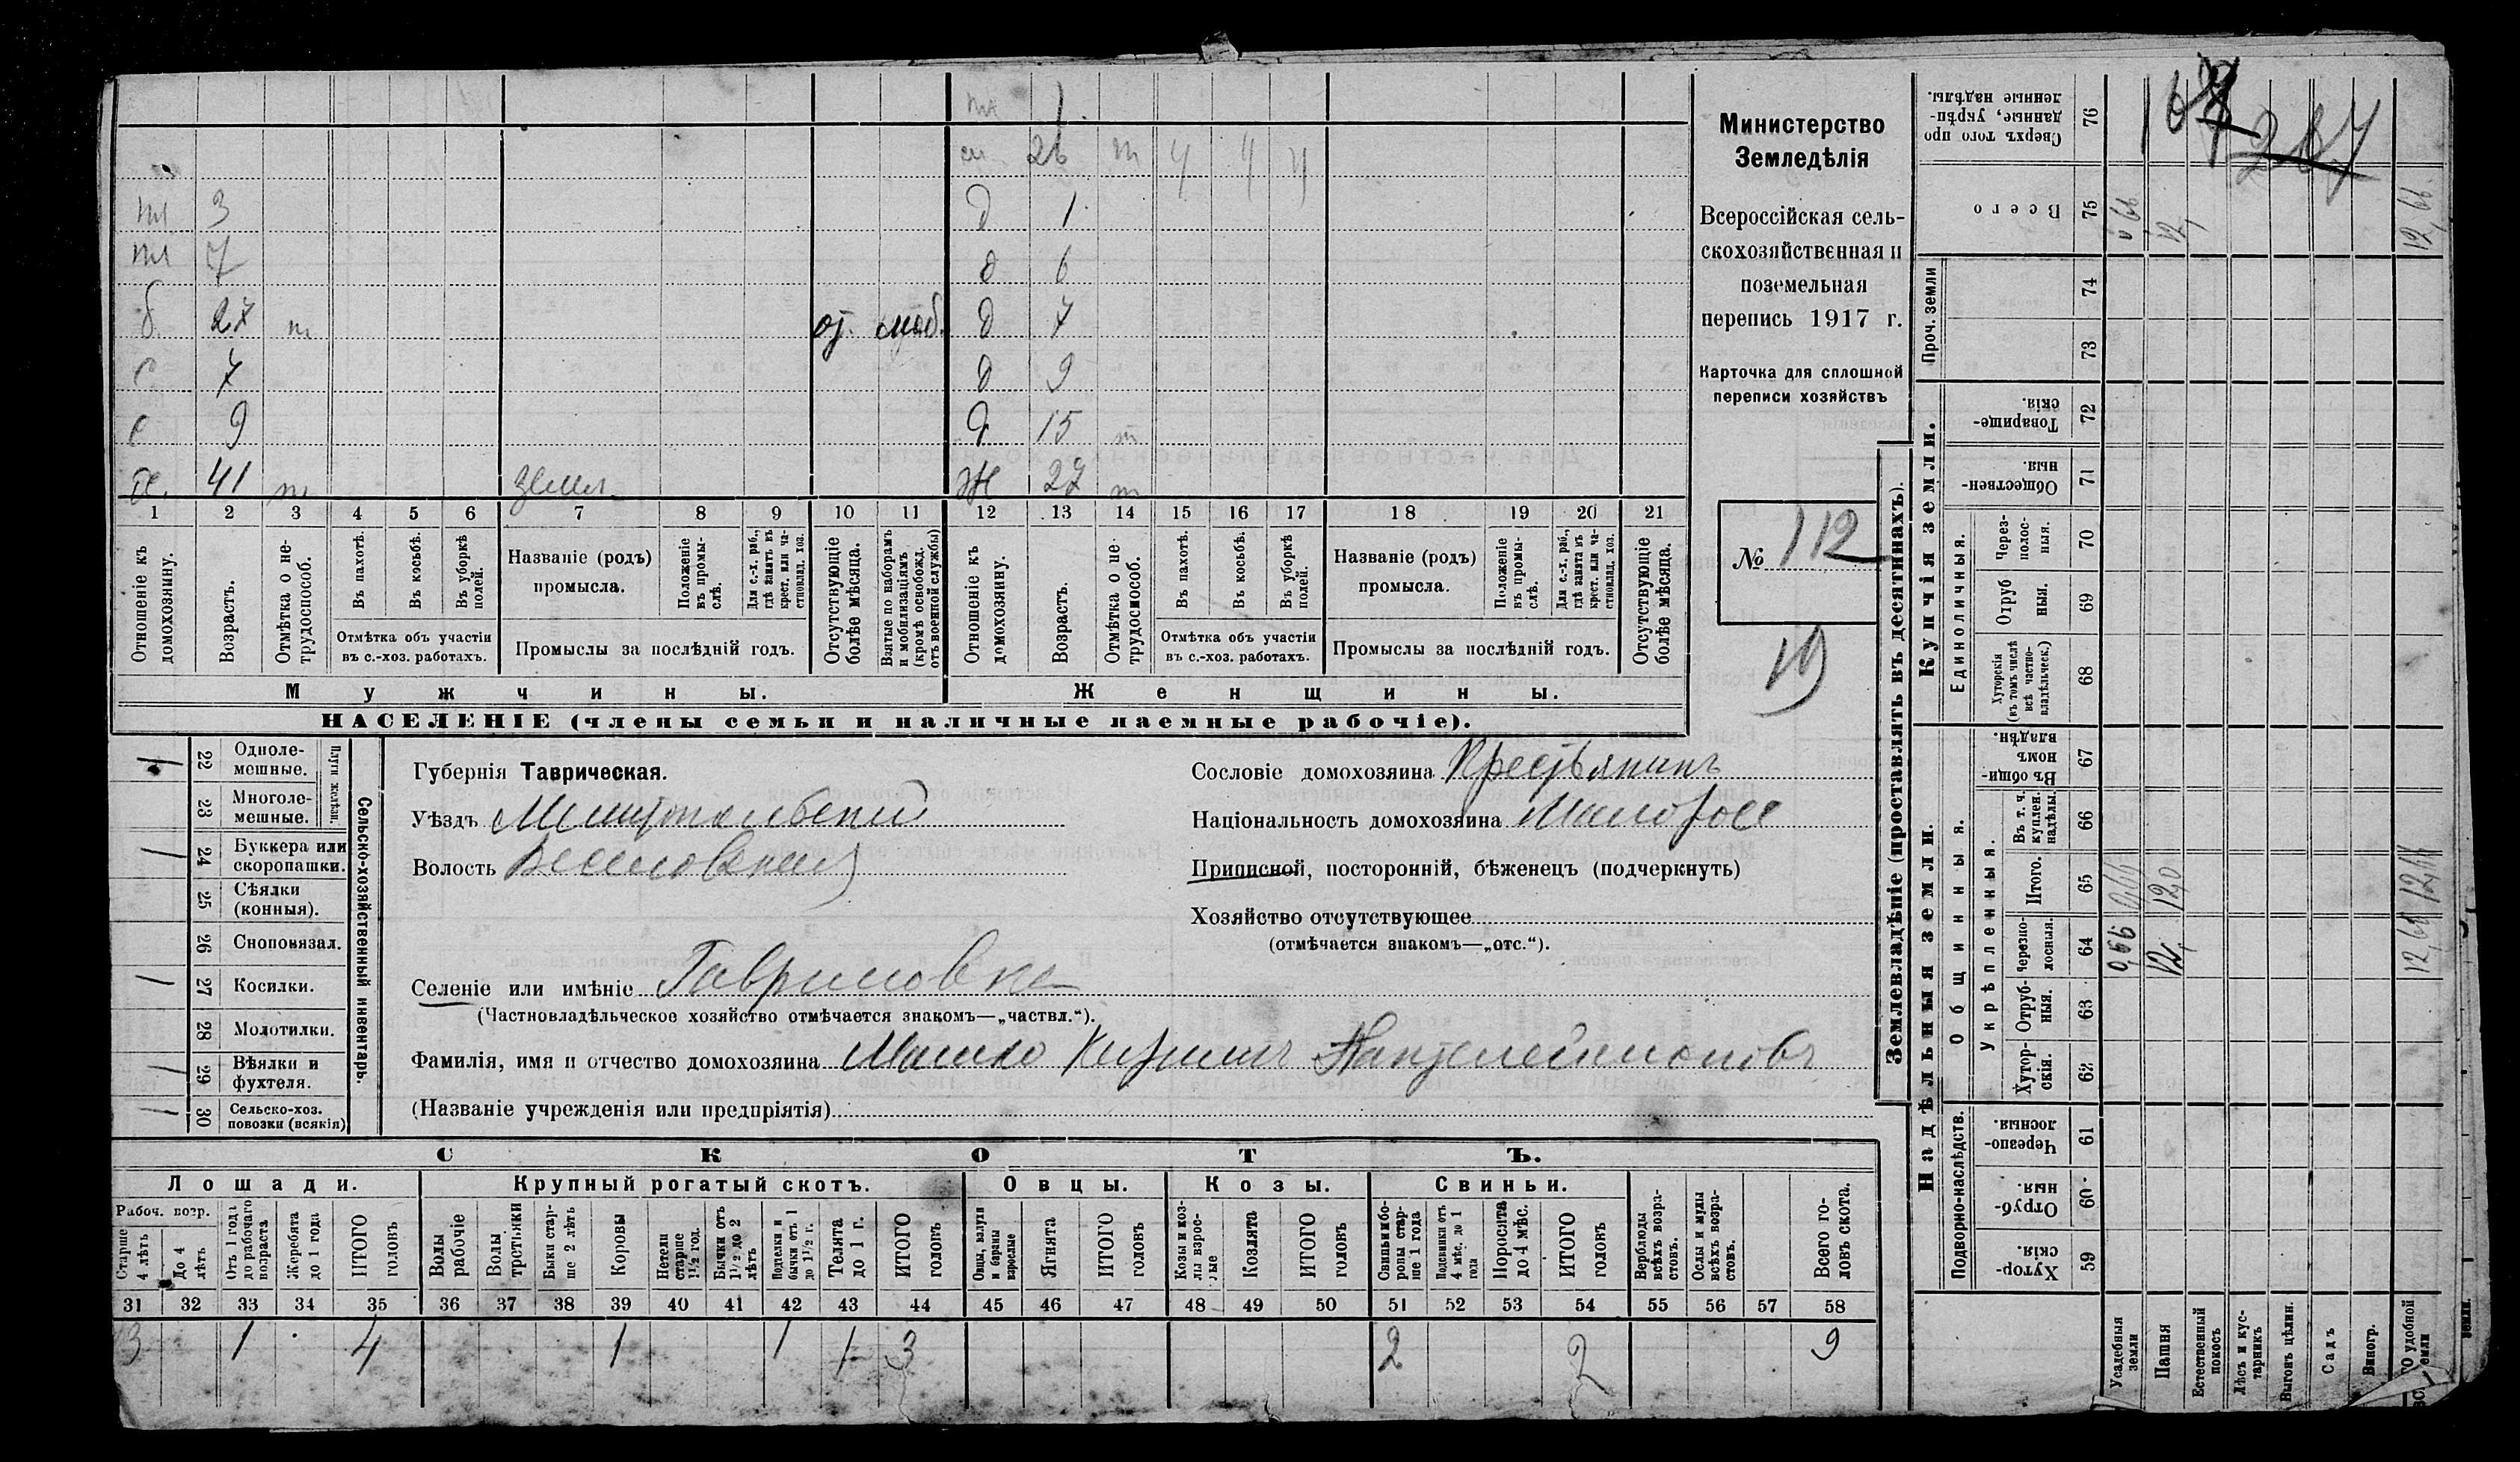 пл 1
пл 26 т ч ч ч
пл 3 д 1
пл 7 д 6
б. 27 т от. моб. д 7
с 7 д 9
с 9 д 15 т
х. 41 т земл. ж 27 т
1 2 3 4 5 6 7 8 9 10 11 12 13 14 15 16 17 18 19 20 21
Отношеніе къ домохозяину.
Возрастъ.
Отмѣтка о не-трудоспособ.
Въ пахотѣ.
Въ косьбѣ.
Въ уборкѣ полей.
Отмѣтка объ участіи
въ с.-хоз. работахъ.
Названіе (родъ)
промысла.
Положеніе въ промы-слѣ.
Для с.-х. раб., гдѣ занятъ въ крест. или ча-стновлад. хоз.
Промыслы за послѣдній годъ.
Отсутствующіе болѣе мѣсяца.
Взятые по наборамъ и мобилизаціямъ (кромѣ освобожд. отъ военной службы)
Отношеніе къ домохозяину.
Возрастъ.
Отмѣтка о не трудоспособ.
Въ пахотѣ.
Въ косьбѣ.
Въ уборкѣ полей.
Отмѣтка объ участіи
въ с.-хоз. работахъ.
Названіе (родъ)
промысла.
Положеніе въ промы-слѣ.
Для с.-х. раб., гдѣ занятъ въ крест. или ча-стновлад. хоз.
Промыслы за послѣдній годъ.
Отсутствующіе болѣе мѣсяца.
Мужчины. Женщины.
НАСЕЛЕНІЕ (члены семьи и наличные наемные рабочіе).
Министерство
Земледѣлія
Всероссійская сель-
скохозяйственная и
поземельная
перепись 1917 г.
Карточка для сплошной
переписи хозяйствъ
№ 112
19
Сельско-хозяйственный инвентарь.
Плуги желѣзн.
22 Одноле-мешные.
23 Многоле-мешные.
24 Буккера или скоропашки.
25 Сѣялки (конныя).
26 Сноповязал.
27 Косилки.
28 Молотилки.
29 Вѣялки и фухтеля.
30 Сельско-хоз. повозки (всякія)
Губернія Таврическая.
Уѣздъ Мелитопольскій
Волость Веселовская
Сословіе домохозяина Крестьянинъ
Національность домохозяина Малоросс
Приписной, посторонній, бѣженецъ (подчеркнуть)
Хозяйство отсутствующее
(отмѣчается знакомъ—„отс.“).
Селеніе или имѣніе Гавриловка
(Частновладѣльческое хозяйство отмѣчается знакомъ—„частвл.“).
Фамилія, имя и отчество домохозяина Кирилъ Пантелеймоновъ
(Названіе учрежденія или предпріятія)
СКОТЪ.
Лошади. Крупный рогатый скотъ. Овцы. Козы. Свиньи.
Рабоч. возр.
Старше 4 лѣтъ
До 4 лѣтъ
Отъ 1 года до рабочаго возраста
Жеребята до 1 года
ИТОГО головъ
Волы рабочіе
Волы третьяки
Быки стар-ше 2 лѣтъ
Коровы
Нетели старше 1½ год.
Бычки отъ 1½ до 2 лѣтъ
Подтелки и бычки отъ 1 до 1½ г.
Телята до 1 г.
ИТОГО головъ
Овцы, валухи и бараны взрослые
Ягнята
ИТОГО головъ
Козы и коз-лы взрос-лые
Козлята
ИТОГО головъ
Свиньи и бо-ровы стар-ше 1 года
Подсвинки отъ 4 мѣс. до 1 года
Поросята до 4 мѣс.
ИТОГО головъ
Верблюды всѣхъ возра-стовъ.
Ослы и мулы всѣхъ возра-стовъ.
Всего го-ловъ скота.
31 32 33 34 35 36 37 38 39 40 41 42 43 44 45 46 47 48 49 50 51 52 53 54 55 56 57 58
3 1 4 1 1 1 3 2 2 9
Землевладѣніе (проставлять въ десятинахъ).
Надѣльныя земли. Купчія земли. Проч. земли
Подворно-наслѣдств. Общинныя. Укрѣпленныя. Единоличныя.
Хутор-скія. 59
Отруб-ныя. 60
Черезпо-лосныя. 61
Хутор-скія. 62
Отруб-ныя. 63
Черезпо-лосныя. 64 0,66 12, 12,66
Итого. 65 0,66 12,0 12,66
Въ т. ч. куплен. надѣлы. 66
Въ общи-номъ владѣн. 67
Хуторскія (въ томъ числѣ всѣ частно-владѣльческ.) 68
Отруб ныя. 69
Через-полос-ныя. 70
Обществен-ныя. 71
Товарище-скія. 72
73
74
Всего 75 0,66 12, 12,66
Сверхъ того про данные, укрѣп-ленные надѣлы. 76
267
Усадебныя земли
Пашня
Естественный покосъ
Лѣсъ и кус-тарникъ
Выгонъ цѣлин.
Садъ
Виногр.
удобной земли